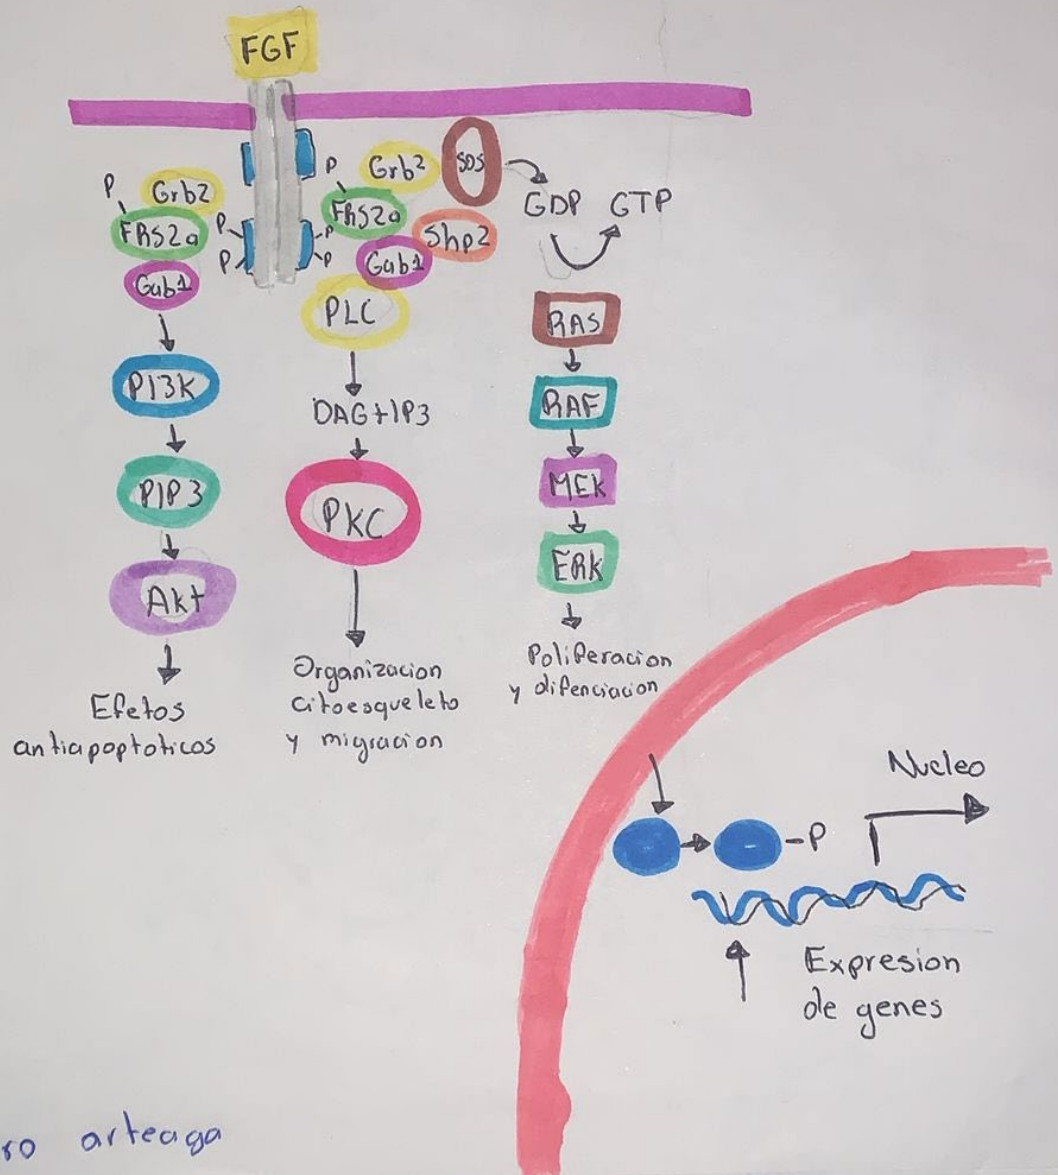 FGF
P
Grb2
FRS2a
Gab1
P
P
PI3K
PIP3
Akt
Efetos
antiapoptoticos
P
Grb2
SOS
FRS2a
Shp2
-P
-P
Gab1
PLC
DAG+IP3
PKC
Organizacion
citoesqueleto
y migracion
GDP GTP
RAS
RAF
MEK
ERK
Poliferacion
y difenciacion
Nucleo
-P
Expresion
de genes
ro arteaga